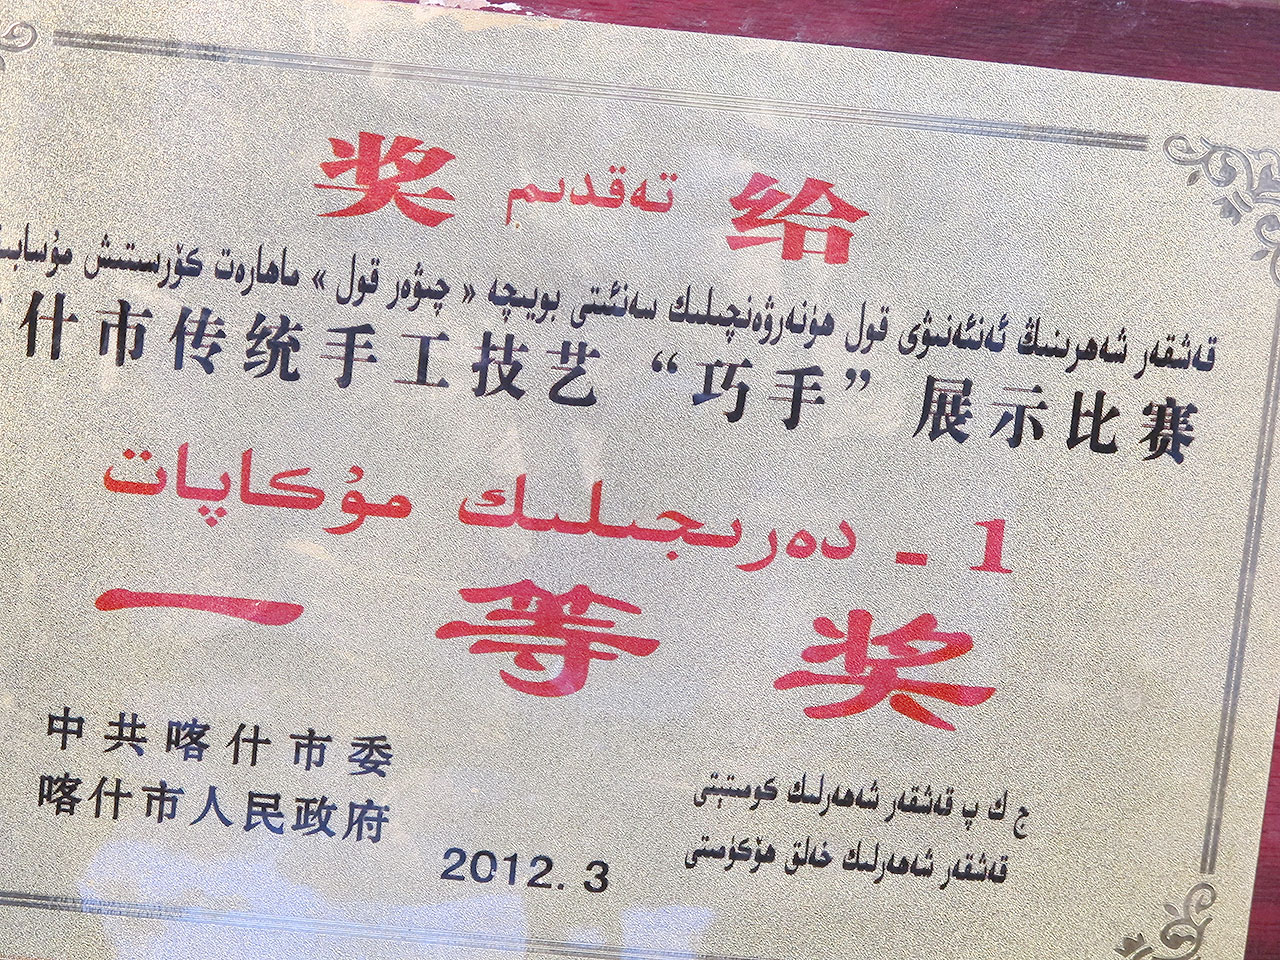 奖 تەقدىم 给
قەشقەر شەھرىنىڭ ئەنئەنىۋى قول ھۈنەرۋەنچىلىك سەنئىتى بويىچە « چىۋەر قول » ماھارەت كۆرسىتىش مۇسابى
什市传统手工技艺“巧手”展示比赛
1 - دەرىجىلىك مۇكاپات
一等奖
中共喀什市委
喀什市人民政府
ج ك پ قەشقەر شەھەرلىك كومىتېتى
قەشقەر شەھەرلىك خەلق ھۆكۈمىتى
2012.3